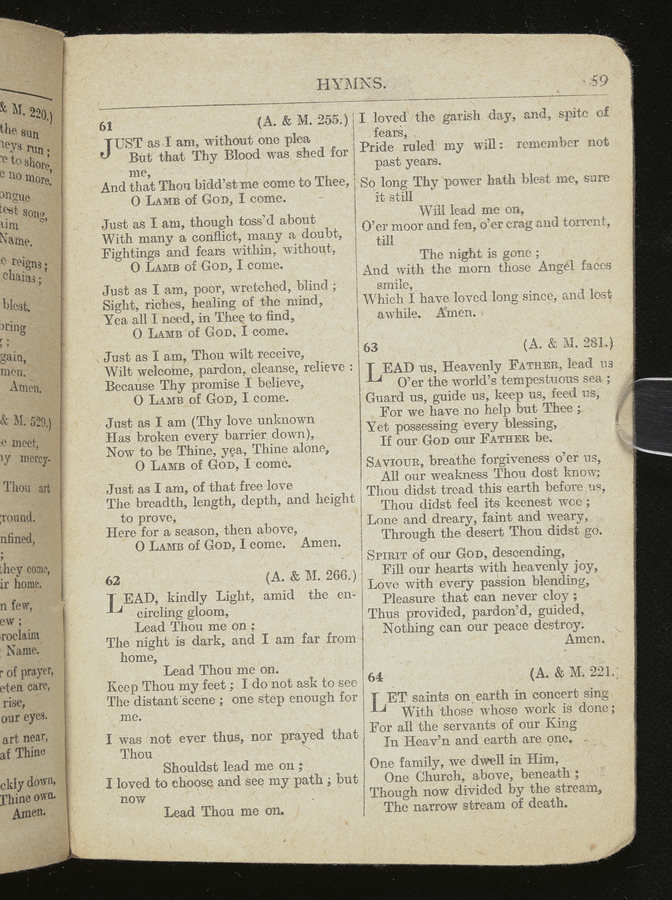 & M. 220.)
the sun
neys run ;
re to shore,
e no more.
ongue
test song,
aim
Name.
e reigns ;
chains ;
blest,
oring
gain,
men.
Amen.
& M. 529.)
e meet,
ny mercy-
Thou art
round.
nfined,
they come,
ir home.
n few,
ew ;
roclaim
Name.
r of prayer,
eten care,
rise,
our eyes.
art near,
af Thine
ckly down,
Thine own.
Amen.
HYMNS. 59
61 (A. & M. 255.)
JUST as I am, without one plea
But that Thy Blood was shed for
me,
And that Thou bidd'st me come to Thee,
O LAMB of GOD, I come.
Just as I am, though toss'd about
With many a conflict, many a doubt,
Fightings and fears within, without,
O LAMB of GOD, I come.
Just as I am, poor, wretched, blind ;
Sight, riches, healing of the mind,
Yea all I need, in Thee to find,
O LAMB of GOD, I come.
Just as I am, Thou wilt receive,
Wilt welcome, pardon, cleanse, relieve :
Because Thy promise I believe,
O LAMB of GOD, I come.
Just as I am (Thy love unknown
Has broken every barrier down),
Now to be Thine, yea, Thine alone,
O LAMB of GOD, I come.
Just as I am, of that free love
The breadth, length, depth, and height
to prove,
Here for a season, then above,
O LAMB of GOD, I come. Amen.
62 (A. & M. 266.)
LEAD, kindly Light, amid the en-
circling gloom,
Lead Thou me on ;
The night is dark, and I am far from
home,
Lead Thou me on.
Keep Thou my feet ; I do not ask to see
The distant scene ; one step enough for
me.
I was not ever thus, nor prayed that
Thou
Shouldst lead me on ;
I loved to choose and see my path ; but
now
Lead Thou me on.
I loved the garish day, and, spite of
fears,
Pride ruled my will : remember not
past years.
So long Thy power hath blest me, sure
it still
Will lead me on,
O'er moor and fen, o'er crag and torrent,
till
The night is gone ;
And with the morn those Angel faces
smile,
Which I have loved long since, and lost
awhile. Amen.
63 (A. & M. 281.)
LEAD us, Heavenly FATHER, lead us
O'er the world's tempestuous sea ;
Guard us, guide us, keep us, feed us,
For we have no help but Thee ;
Yet possessing every blessing,
If our GOD our FATHER be.
SAVIOUR, breathe forgiveness o'er us,
All our weakness Thou dost know;
Thou didst tread this earth before us,
Thou didst feel its keenest woe ;
Lone and dreary, faint and weary,
Through the desert Thou didst go.
SPIRIT of our GOD, descending,
Fill our hearts with heavenly joy,
Love with every passion blending,
Pleasure that can never cloy ;
Thus provided, pardon'd, guided,
Nothing can our peace destroy.
Amen.
64 (A. & M. 221.)
LET saints on earth in concert sing
With those whose work is done;
For all the servants of our King
In Heav'n and earth are one.
One family, we dwell in Him,
One Church, above, beneath ;
Though now divided by the stream,
The narrow stream of death.